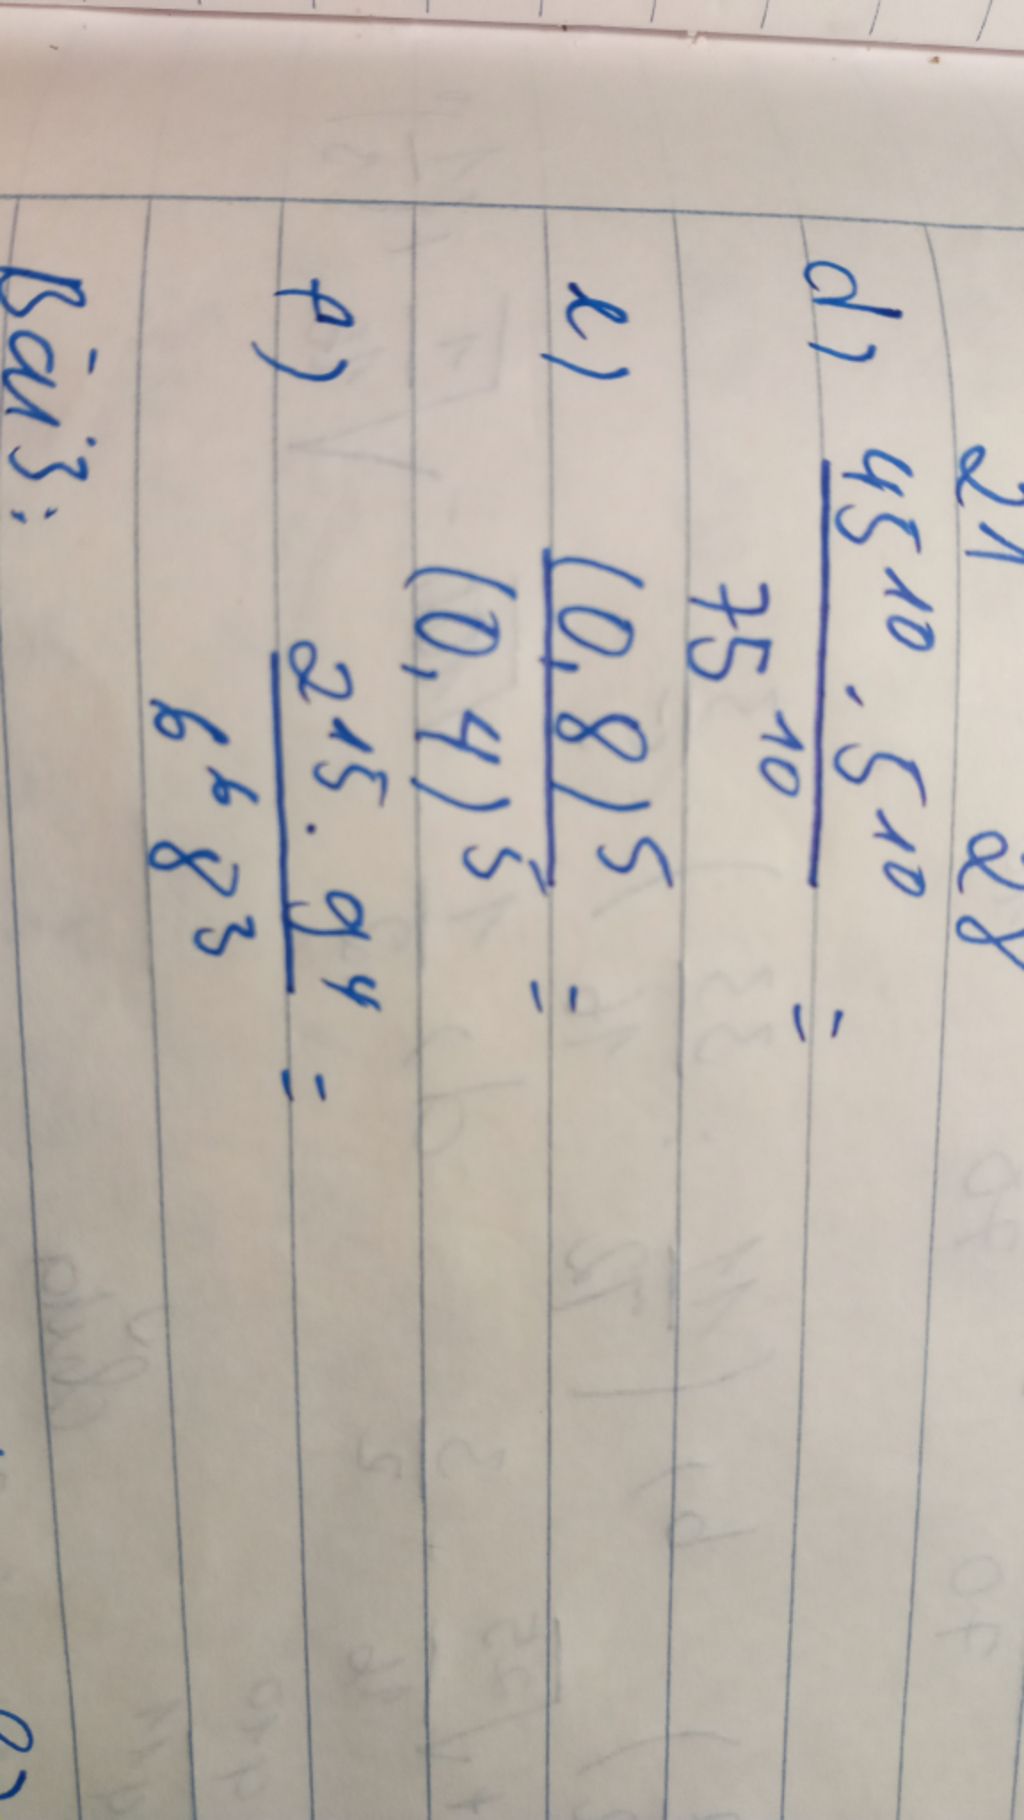 21 28
d) 45^10 . 5^10 =
75^10
e) (0,8)^5 =
(0,4)^5
f) 2^15 . 9^4 =
6^6 8^3
Bài 3: